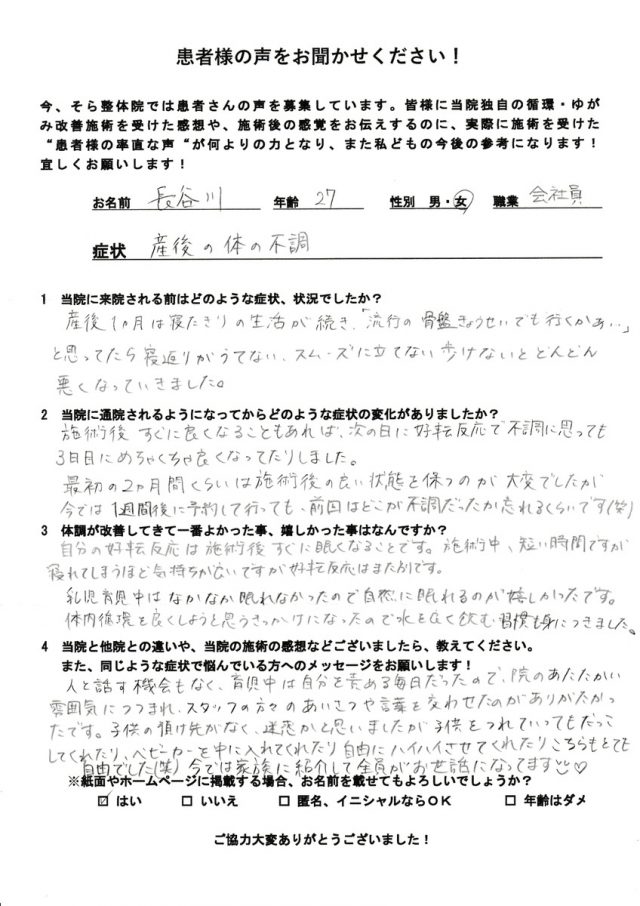 患者様の声をお聞かせください！
今、そら整体院では患者さんの声を募集しています。皆様に当院独自の循環・ゆが
み改善施術を受けた感想や、施術後の感覚をお伝えするのに、実際に施術を受けた
“患者様の率直な声“が何よりの力となり、また私どもの今後の参考になります！
宜しくお願いします！
お名前 長谷川 年齢 27 性別 男・女 職業 会社員
症状 産後の体の不調
1 当院に来院される前はどのような症状、状況でしたか？
産後1ヵ月は寝たきりの生活が続き、「流行の骨盤きょうせいでも行くかぁ…」
と思ってたら寝返りがうてない、スムーズに立てない歩けないとどんどん
悪くなっていきました。
2 当院に通院されるようになってからどのような症状の変化がありましたか？
施術後すぐに良くなることもあれば、次の日に好転反応で不調に思っても
3日目にめちゃくちゃ良くなってたりしました。
最初の2ヵ月間くらいは施術後の良い状態を保つのが大変でしたが
今では1週間後に予約して行っても、前回はどこが不調だったか忘れるくらいです(笑)
3 体調が改善してきて一番よかった事、嬉しかった事はなんですか？
自分の好転反応は施術後すぐに眠くなることです。施術中、短い時間ですが
寝れてしまうほど気持ちが良いですが好転反応はまた別です。
乳児育児中はなかなか眠れなかったので自然に眠れるのが嬉しかったです。
体内循環を良くしようと思うきっかけになったので水を良く飲む習慣も身につきました。
4 当院と他院との違いや、当院の施術の感想などございましたら、教えてください。
また、同じような症状で悩んでいる方へのメッセージをお願いします！
人と話す機会もなく、育児中は自分を責める毎日だったので、院のあたたかい
雰囲気につつまれ、スタッフの方々のあいさつや言葉を交わせたのがありがたかっ
たです。子供の預け先がなく、迷惑かと思いましたが子供をつれていってもだっこ
してくれたり、ベビーカーを中に入れてくれたり自由にハイハイさせてくれたりこちらもとても
自由でした(笑) 今では家族に紹介して全員がお世話になってます♡
※紙面やホームページに掲載する場合、お名前を載せてもよろしいでしょうか？
☑ はい □ いいえ □ 匿名、イニシャルならOK □ 年齢はダメ
ご協力大変ありがとうございました！